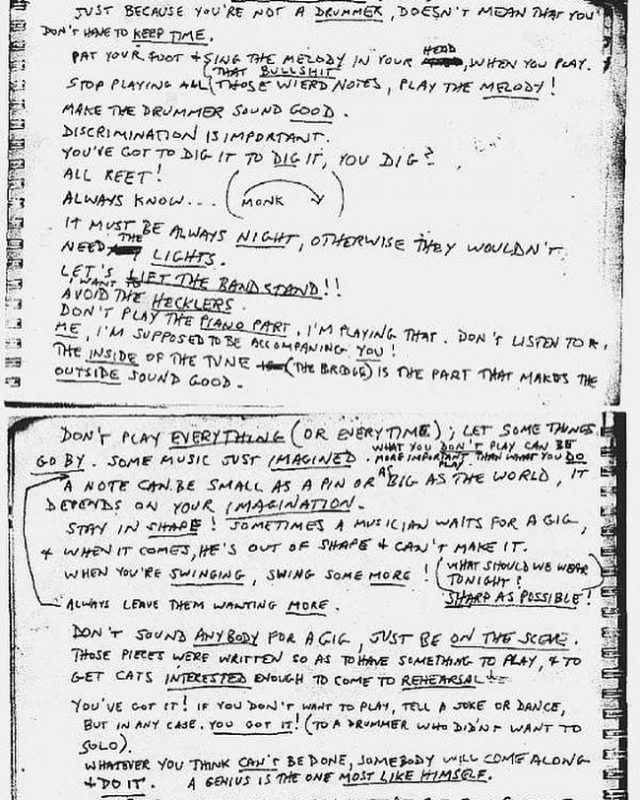 JUST BECAUSE YOU'RE NOT A DRUMMER, DOESN'T MEAN THAT YOU
DON'T HAVE TO KEEP TIME.
PAT YOUR FOOT & SING THE MELODY IN YOUR HEAD, WHEN YOU PLAY.
STOP PLAYING ALL (THAT BULLSHIT) THOSE WIERD NOTES, PLAY THE MELODY!
MAKE THE DRUMMER SOUND GOOD.
DISCRIMINATION IS IMPORTANT.
YOU'VE GOT TO DIG IT TO DIG IT, YOU DIG?
ALL REET!
ALWAYS KNOW... (MONK)
IT MUST BE ALWAYS NIGHT, OTHERWISE THEY WOULDN'T
NEED THE LIGHTS.
LET'S LIFT THE BAND STAND!!
I WANT TO AVOID THE HECKLERS.
DON'T PLAY THE PIANO PART, I'M PLAYING THAT. DON'T LISTEN TO
ME, I'M SUPPOSED TO BE ACCOMPANING YOU!
THE INSIDE OF THE TUNE (THE BRIDGE) IS THE PART THAT MAKES THE
OUTSIDE SOUND GOOD.
DON'T PLAY EVERYTHING (OR EVERYTIME); LET SOME THINGS
GO BY. SOME MUSIC JUST IMAGINED. WHAT YOU DON'T PLAY CAN BE
MORE IMPORTANT THAN WHAT YOU DO PLAY.
A NOTE CAN BE SMALL AS A PIN OR AS BIG AS THE WORLD, IT
DEPENDS ON YOUR IMAGINATION.
STAY IN SHAPE! SOMETIMES A MUSICIAN WAITS FOR A GIG,
& WHEN IT COMES, HE'S OUT OF SHAPE & CAN'T MAKE IT.
WHEN YOU'RE SWINGING, SWING SOME MORE!
(WHAT SHOULD WE WEAR
TONIGHT?
SHARP AS POSSIBLE!
ALWAYS LEAVE THEM WANTING MORE.
DON'T SOUND ANYBODY FOR A GIG, JUST BE ON THE SCENE.
THOSE PIECES WERE WRITTEN SO AS TO HAVE SOMETHING TO PLAY, & TO
GET CATS INTERESTED ENOUGH TO COME TO REHEARSAL
YOU'VE GOT IT! IF YOU DON'T WANT TO PLAY, TELL A JOKE OR DANCE,
BUT IN ANY CASE, YOU GOT IT! (TO A DRUMMER WHO DIDN'T WANT TO
SOLO).
WHATEVER YOU THINK CAN'T BE DONE, SOMEBODY WILL COME ALONG
& DO IT. A GENIUS IS THE ONE MOST LIKE HIMSELF.